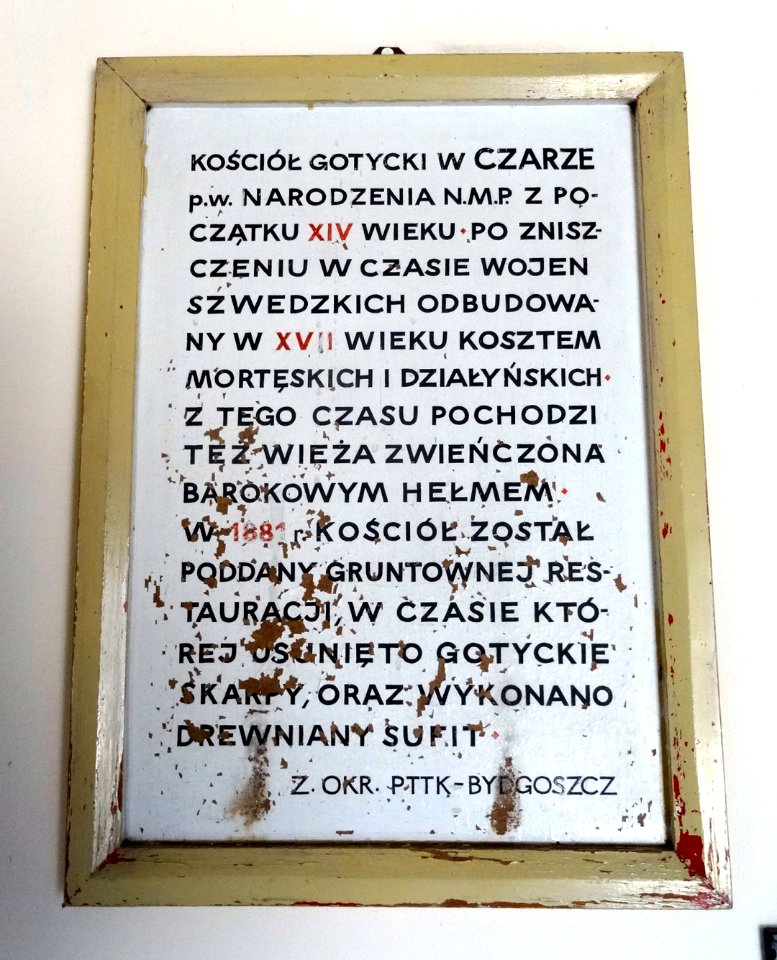 KOŚCIÓŁ GOTYCKI W CZARZE
p.w. NARODZENIA N.M.P. Z PO-
CZĄTKU XIV WIEKU·PO ZNISZ-
CZENIU W CZASIE WOJEN
SZWEDZKICH ODBUDOWA-
NY W XVII WIEKU KOSZTEM
MORTĘSKICH I DZIAŁYŃSKICH·
Z TEGO CZASU POCHODZI
TEŻ WIEŻA ZWIEŃCZONA
BAROKOWYM HEŁMEM·
W 1881 r. KOŚCIÓŁ ZOSTAŁ
PODDANY GRUNTOWNEJ RES-
TAURACJI, W CZASIE KTÓ-
REJ USUNIĘTO GOTYCKIE
SKARPY, ORAZ WYKONANO
DREWNIANY SUFIT·
Z. OKR. PTTK-BYDGOSZCZ